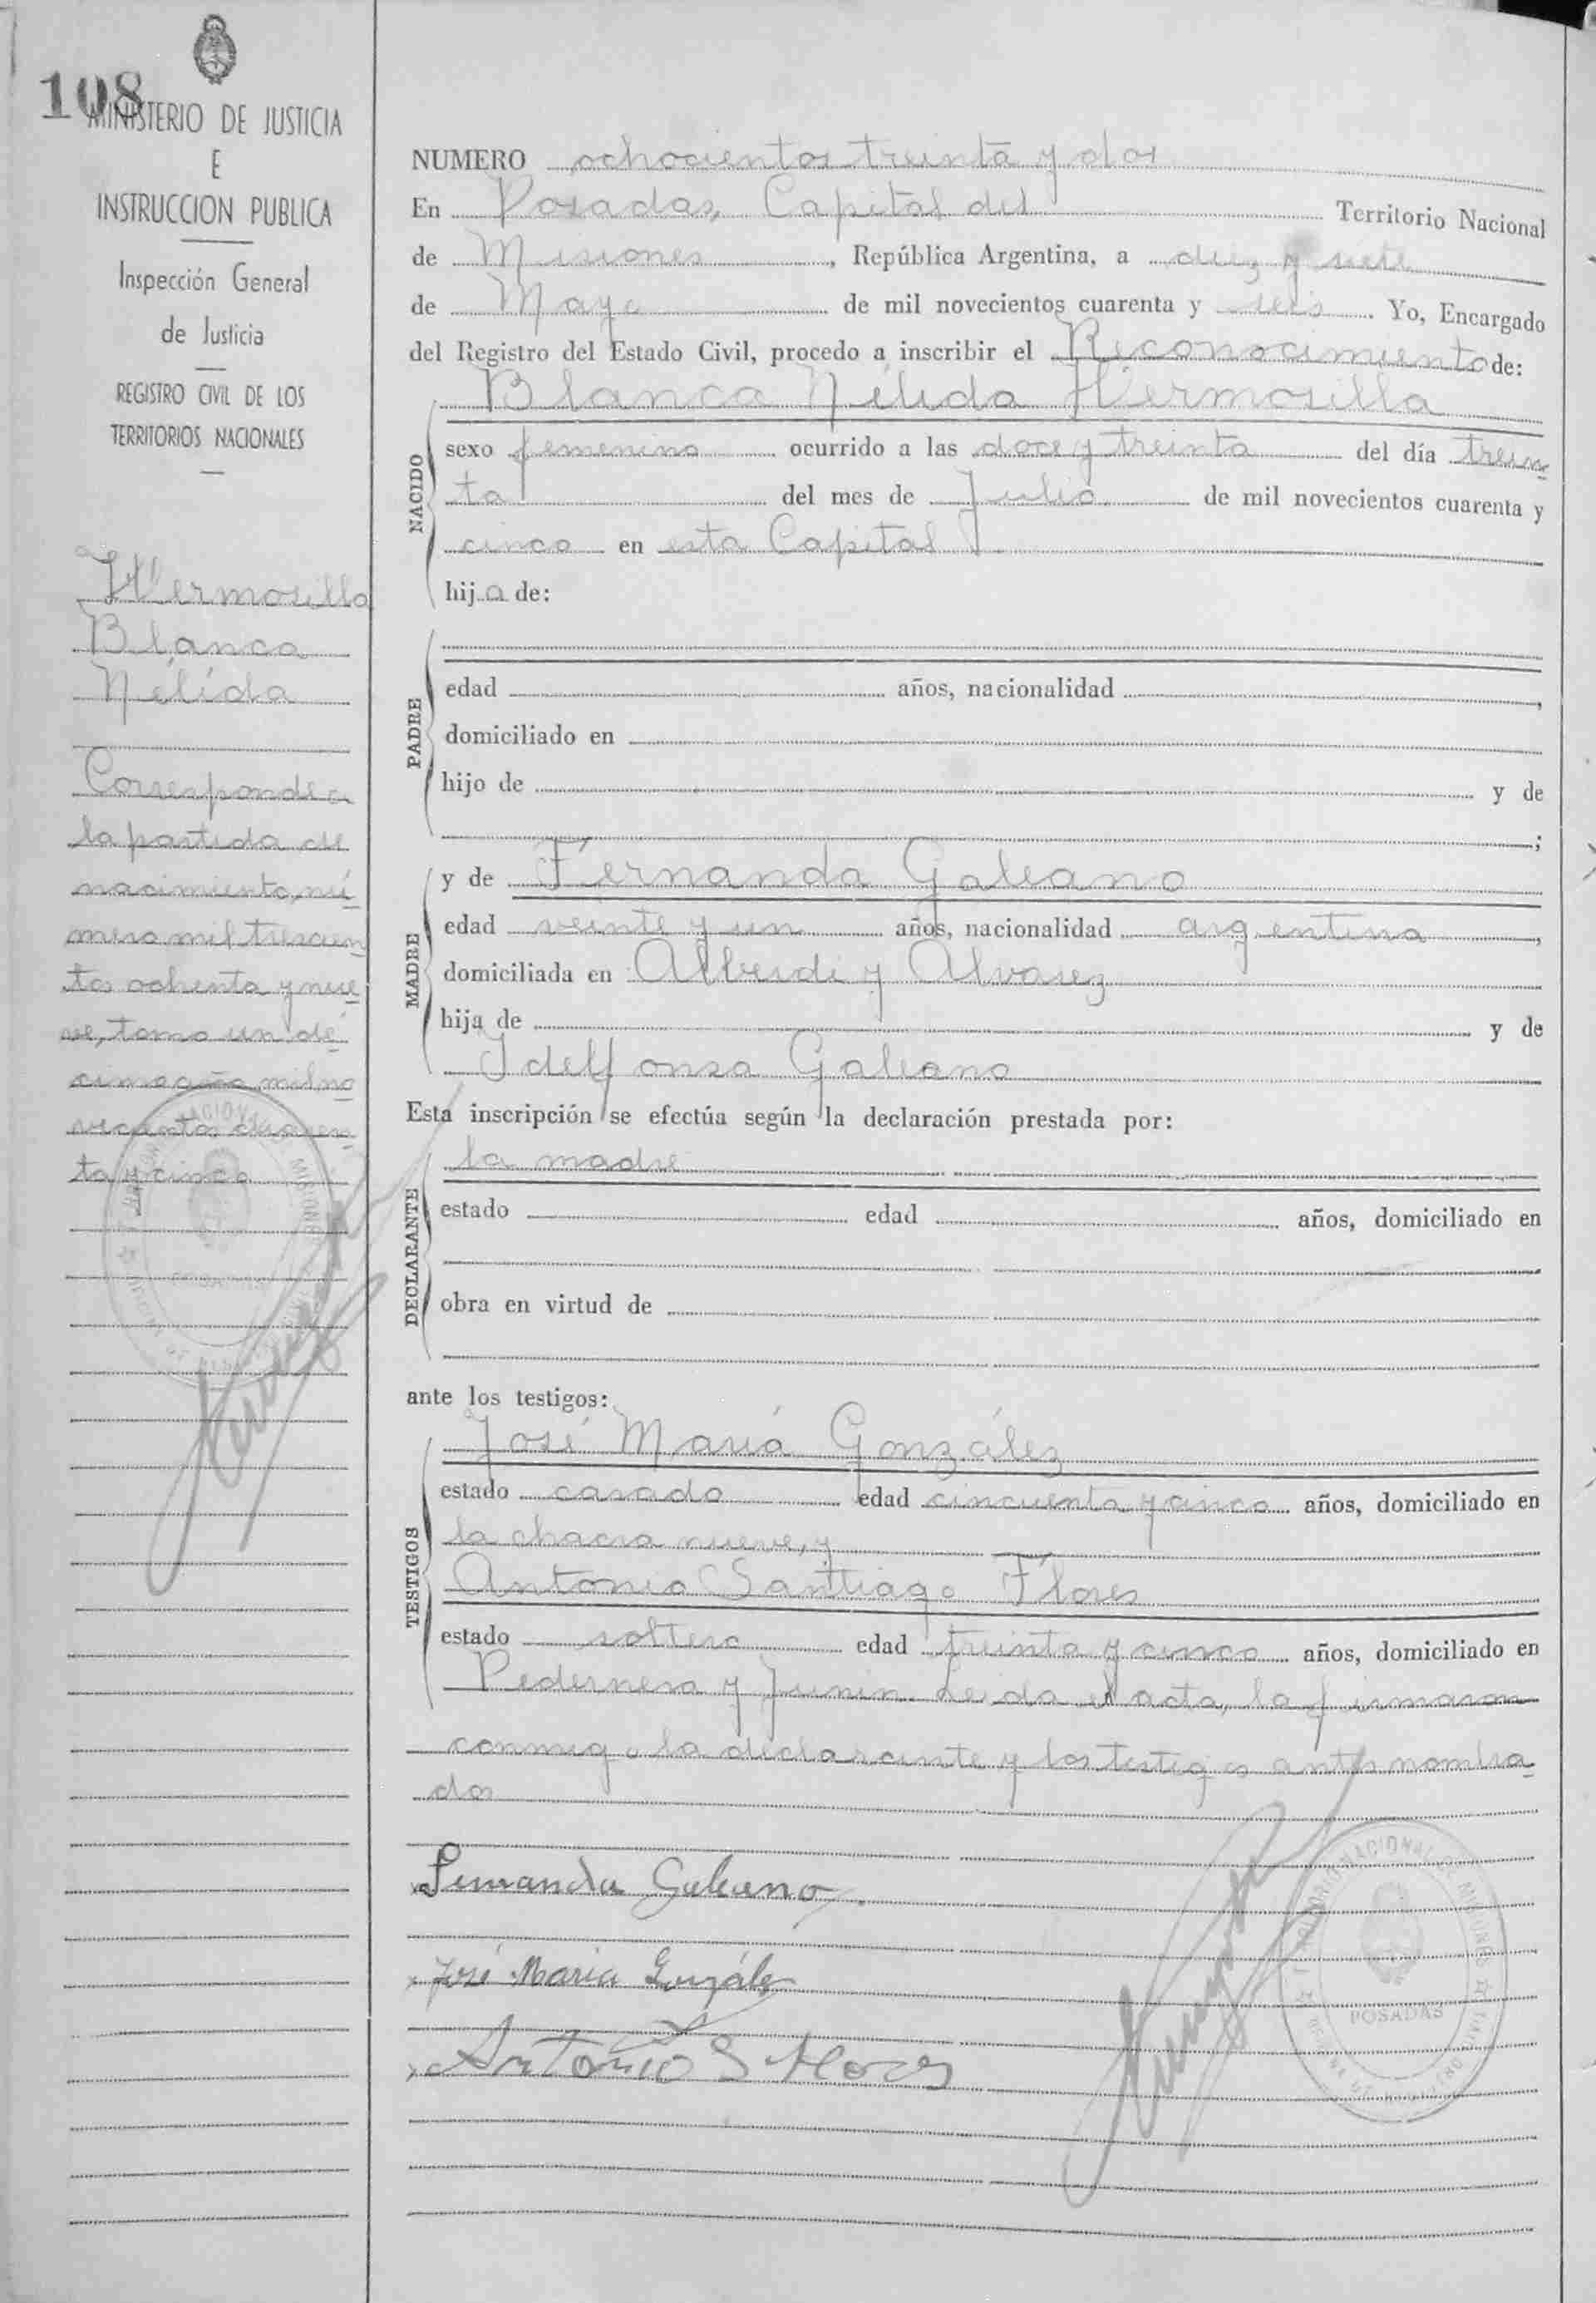 108
MINISTERIO DE JUSTICIA
E
INSTRUCCION PUBLICA
Inspección General
de Justicia
REGISTRO CIVIL DE LOS
TERRITORIOS NACIONALES
Hermosilla
Blanca
Nélida
Corresponde a
la partida de
nacimiento, nú
mero mil trescien
tos ochenta y nue
ve, tomo un dé
cimo año mil no
vecientos cuaren
ta y cinco
NUMERO ochocientos treinta y dos
En Posadas, Capital del Territorio Nacional
de Misiones, República Argentina, a diez y siete
de Mayo de mil novecientos cuarenta y seis. Yo, Encargado
del Registro del Estado Civil, procedo a inscribir el Reconocimiento de:
NACIDO
Blanca Nélida Hermosilla
sexo femenino ocurrido a las doce y treinta del día trein
ta del mes de Julio de mil novecientos cuarenta y
cinco en esta Capital
hija de:
PADRE
edad años, nacionalidad ,
domiciliado en
hijo de y de
;
MADRE
y de Fernanda Galeano
edad veinte y un años, nacionalidad argentina,
domiciliada en Alberdi y Alvarez
hija de y de
Idelfonsa Galeano
Esta inscripción se efectúa según la declaración prestada por:
DECLARANTE
la madre
estado edad años, domiciliado en
obra en virtud de
ante los testigos:
TESTIGOS
José María González
estado casado edad cincuenta y cinco años, domiciliado en
la chacra nueve, y
Antonio Santiago Flores
estado soltero edad treinta y cinco años, domiciliado en
Pedernera y Junin. Leida el acta, la firmaron
conmigo la declarante y los testigos antes nombra
dos
Fernanda Galeano.
José María González
Antonio S Flores
NACIONAL DE MISIONES
POSADAS